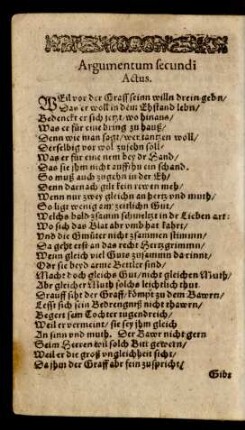 Argumentum secundi
Actus.
WEil vor der Graff seinn willn drein gebn/
Das er woll in dem Ehstand lebn/
Bedenckt er sich jetzt/ wo hinaus/
Was er für eine bring zu hauß/
Denn wie man sagt/ wer tantzen woll/
Derselbig vor wol zusehn soll/
Was er für eine nem bey der Hand/
Das sie jhm nicht auffthu ein schand.
So muß auch zugehn in der Eh/
Denn darnach gilt kein rewen meh/
Wenn nur zwey gleichn an hertz vnd muth/
So ligt wenig am zeitlichn Gut/
Welchs bald zsamm schmeltzt in der Lieben art:
Wo sich das Blat abr vmb hat kahrt/
Vnd die Gmüter nicht zsammen stimmn/
Da geht erst an das recht Hertzgrimmn/
Wenn gleich viel Guts zusamm da rinnt/
Odr sie beyd arme Bettler sind/
Macht doch gleichs Gut/ nicht gleichen Muth/
Abr gleicher Muth solchs leichtlich thut.
Drauff siht der Graff/ kömpt zu dem Bawrn/
Lesst sich sein Bedrengnuß nicht thawrn/
Begert sam Tochter tugendreich/
Weil er vermeint/ sie sey jhm gleich
An sinn vnd muth. Der Bawr nicht gern
Seim Herren wil solch Bitt gewern/
Weil er die groß vngleichheit sicht/
Da jhm der Graff abr fein zuspricht/
Gibt